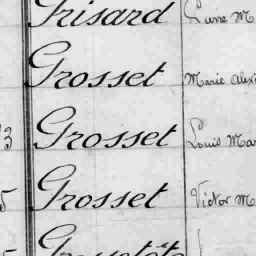 Frisard
Grosset Marie Alex
3 Grosset Louis Mar
5 Grosset Victor M